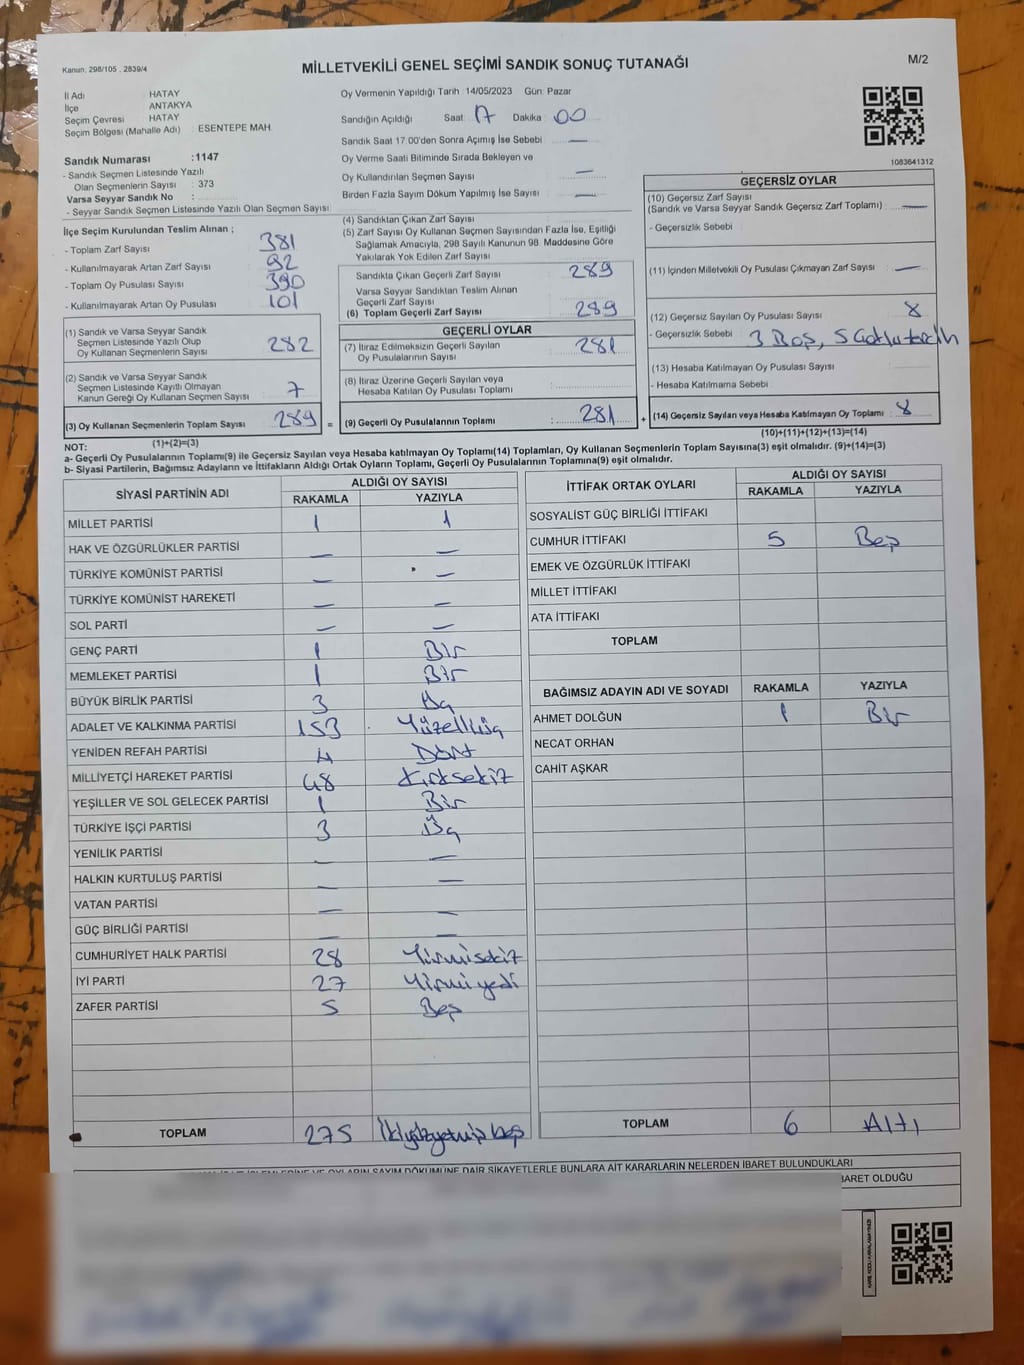 Kanun, 298/105 , 2839/4
MİLLETVEKİLİ GENEL SEÇİMİ SANDIK SONUÇ TUTANAĞI
M/2
İl Adı : HATAY
İlçe : ANTAKYA
Seçim Çevresi : HATAY
Seçim Bölgesi (Mahalle Adı) : ESENTEPE MAH.
Sandık Numarası :1147
- Sandık Seçmen Listesinde Yazılı
Olan Seçmenlerin Sayısı : 373
Varsa Seyyar Sandık No :
- Seyyar Sandık Seçmen Listesinde Yazılı Olan Seçmen Sayısı:
Oy Vermenin Yapıldığı Tarih :14/05/2023 Gün: Pazar
Sandığın Açıldığı Saat: 17 Dakika: 00
Sandık Saat 17.00'den Sonra Açımış İse Sebebi : —
Oy Verme Saati Bitiminde Sırada Bekleyen ve
Oy Kullandırılan Seçmen Sayısı : —
Birden Fazla Sayım Döküm Yapılmış İse Sayısı : —
1083641312
İlçe Seçim Kurulundan Teslim Alınan ;
- Toplam Zarf Sayısı : 381
- Kullanılmayarak Artan Zarf Sayısı : 92
- Toplam Oy Pusulası Sayısı : 390
- Kullanılmayarak Artan Oy Pusulası : 101
(1) Sandık ve Varsa Seyyar Sandık
Seçmen Listesinde Yazılı Olup
Oy Kullanan Seçmenlerin Sayısı : 282
(2) Sandık ve Varsa Seyyar Sandık
Seçmen Listesinde Kayıtlı Olmayan
Kanun Gereği Oy Kullanan Seçmen Sayısı : 7
(3) Oy Kullanan Seçmenlerin Toplam Sayısı : 289 =
(1)+(2)=(3)
(4) Sandıktan Çıkan Zarf Sayısı :
(5) Zarf Sayısı Oy Kullanan Seçmen Sayısından Fazla İse, Eşitliği
Sağlamak Amacıyla, 298 Sayılı Kanunun 98. Maddesine Göre
Yakılarak Yok Edilen Zarf Sayısı :
Sandıkta Çıkan Geçerli Zarf Sayısı : 289
Varsa Seyyar Sandıktan Teslim Alınan
Geçerli Zarf Sayısı :
(6) Toplam Geçerli Zarf Sayısı : 289
GEÇERLİ OYLAR
(7) İtiraz Edilmeksizin Geçerli Sayılan
Oy Pusulalarının Sayısı : 281
(8) İtiraz Üzerine Geçerli Sayılan veya
Hesaba Katılan Oy Pusulası Toplamı :
(9) Geçerli Oy Pusulalarının Toplamı : 281 +
GEÇERSİZ OYLAR
(10) Geçersiz Zarf Sayısı
(Sandık ve Varsa Seyyar Sandık Geçersiz Zarf Toplamı) : —
- Geçersizlik Sebebi :
(11) İçinden Milletvekili Oy Pusulası Çıkmayan Zarf Sayısı : —
(12) Geçersiz Sayılan Oy Pusulası Sayısı : 8
- Geçersizlik Sebebi : 3 Boş, 5
(13) Hesaba Katılmayan Oy Pusulası Sayısı :
- Hesaba Katılmama Sebebi :
(14) Geçersiz Sayılan veya Hesaba Katılmayan Oy Toplamı : 8
(10)+(11)+(12)+(13)=(14)
NOT:
a- Geçerli Oy Pusulalarının Toplamı(9) ile Geçersiz Sayılan veya Hesaba katılmayan Oy Toplamı(14) Toplamları, Oy Kullanan Seçmenlerin Toplam Sayısına(3) eşit olmalıdır. (9)+(14)=(3)
b- Siyasi Partilerin, Bağımsız Adayların ve İttifakların Aldığı Ortak Oyların Toplamı, Geçerli Oy Pusulalarının Toplamına(9) eşit olmalıdır.
SİYASİ PARTİNİN ADI ALDIĞI OY SAYISI
RAKAMLA YAZIYLA
MİLLET PARTİSİ 1 1
HAK VE ÖZGÜRLÜKLER PARTİSİ — —
TÜRKİYE KOMÜNİST PARTİSİ — —
TÜRKİYE KOMÜNİST HAREKETİ — —
SOL PARTİ — —
GENÇ PARTİ 1 Bir
MEMLEKET PARTİSİ 1 Bir
BÜYÜK BİRLİK PARTİSİ 3 Üç
ADALET VE KALKINMA PARTİSİ 153 Yüzelliüç
YENİDEN REFAH PARTİSİ 4 Dört
MİLLİYETÇİ HAREKET PARTİSİ 48 Kırksekiz
YEŞİLLER VE SOL GELECEK PARTİSİ 1 Bir
TÜRKİYE İŞÇİ PARTİSİ 3 Üç
YENİLİK PARTİSİ — —
HALKIN KURTULUŞ PARTİSİ — —
VATAN PARTİSİ — —
GÜÇ BİRLİĞİ PARTİSİ — —
CUMHURİYET HALK PARTİSİ 28 Yirmisekiz
İYİ PARTİ 27 Yirmiyedi
ZAFER PARTİSİ 5 Beş
TOPLAM 275 İkiyüzyetmiş beş
İTTİFAK ORTAK OYLARI ALDIĞI OY SAYISI
RAKAMLA YAZIYLA
SOSYALİST GÜÇ BİRLİĞİ İTTİFAKI
CUMHUR İTTİFAKI 5 Beş
EMEK VE ÖZGÜRLÜK İTTİFAKI
MİLLET İTTİFAKI
ATA İTTİFAKI
TOPLAM
BAĞIMSIZ ADAYIN ADI VE SOYADI RAKAMLA YAZIYLA
AHMET DOLĞUN 1 Bir
NECAT ORHAN
CAHİT AŞKAR
TOPLAM 6 Altı
OYLARIN SAYIM DÖKÜMÜNE DAİR ŞİKAYETLERLE BUNLARA AİT KARARLARIN NELERDEN İBARET BULUNDUKLARI
İBARET OLDUĞU
KARE KODU KARALAMAYINIZ!